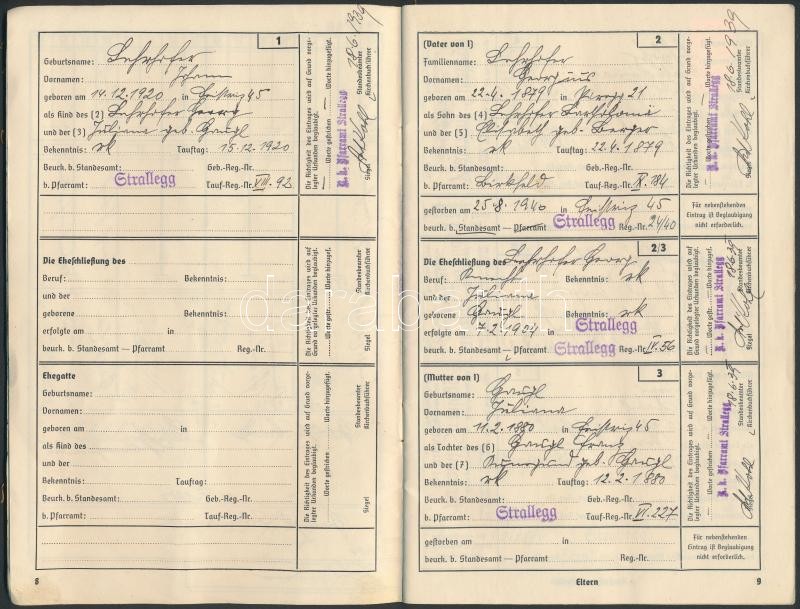 1
Geburtsname: Lehrhofer
Vornamen: Johann
geboren am 14.12.1920 in Feistritz 45
als Kind des (2) Lehrhofer Georg
und der (3) Juliana geb. Gaugl
Bekenntnis: rk Tauftag: 15.12.1920
Beurk. b. Standesamt: Geb.-Reg.-Nr.
b. Pfarramt: Strallegg Tauf-Reg.-Nr. VIII. 92
Die Richtigkeit des Eintrages wird auf Grund vorge-
legter Urkunden beglaubigt.
Worte gestrichen — Worte hinzugefügt.
R. k. Pfarramt Strallegg
18.6.1939
Standesbeamter
Kirchenbuchführer
Siegel
Die Eheschließung des
Beruf: Bekenntnis:
und der
geborene Bekenntnis:
erfolgte am in
beurk. b. Standesamt — Pfarramt Reg.-Nr.
Die Richtigkeit des Eintrages wird auf
Grund vorgelegter Urkunden beglaubigt.
Worte gestr. Worte hinzugefügt.
Standesbeamter
Kirchenbuchführer
Siegel
Ehegatte
Geburtsname:
Vornamen:
geboren am in
als Kind des
und der
Bekenntnis: Tauftag:
Beurk. b. Standesamt: Geb.-Reg.-Nr.
b. Pfarramt: Tauf-Reg.-Nr.
Die Richtigkeit des Eintrages wird auf Grund vorge-
legter Urkunden beglaubigt.
Worte gestrichen Worte hinzugefügt.
Standesbeamter
Kirchenbuchführer
Siegel
8
(Vater von 1) 2
Familienname: Lehrhofer
Vornamen: Georgius
geboren am 22.4.1879 in 21
als Sohn des (4) Lehrhofer Bartholomä
und der (5) Elisabeth geb. Berger
Bekenntnis: rk Tauftag: 22.4.1879
Beurk. b. Standesamt: Geb.-Reg.-Nr.
b. Pfarramt: Birkfeld Tauf-Reg.-Nr. X. 184
gestorben am 25.8.1940 in Feistritz 45
beurk. b. Standesamt — Pfarramt Strallegg Reg.-Nr. 24/40
Die Richtigkeit des Eintrages wird auf Grund vorge-
legter Urkunden beglaubigt.
Worte gestrichen — Worte hinzugefügt.
R. k. Pfarramt Strallegg
18.6.1939
Standesbeamter
Kirchenbuchführer
Siegel
Für nebenstehenden
Eintrag ist Beglaubigung
nicht erforderlich.
2/3
Die Eheschließung des Lehrhofer Georg
Beruf: Knecht Bekenntnis: rk
und der Juliana
geborene Gaugl Bekenntnis: rk
erfolgte am 7.2.1904 in Strallegg
beurk. b. Standesamt — Pfarramt Strallegg Reg.-Nr. IV. 56
Die Richtigkeit des Eintrages wird auf
Grund vorgelegter Urkunden beglaubigt.
Worte gestr. Worte hinzugefügt.
R. k. Pfarramt Strallegg
18.6.39
Standesbeamter
Kirchenbuchführer
Siegel
(Mutter von 1) 3
Geburtsname: Gaugl
Vornamen: Juliana
geboren am 11.2.1880 in Feistritz 45
als Tochter des (6) Gaugl Franz
und der (7) geb. Gaugl
Bekenntnis: rk Tauftag: 12.2.1880
Beurk. b. Standesamt: Geb.-Reg.-Nr.
b. Pfarramt: Strallegg Tauf-Reg.-Nr. VI. 227
gestorben am in
beurk. b. Standesamt — Pfarramt Reg.-Nr.
Die Richtigkeit des Eintrages wird auf Grund vorge-
legter Urkunden beglaubigt.
Worte gestrichen Worte hinzugefügt.
R. k. Pfarramt Strallegg
18.6.39
Standesbeamter
Kirchenbuchführer
Siegel
Für nebenstehenden
Eintrag ist Beglaubigung
nicht erforderlich.
Eltern
9
darabanth